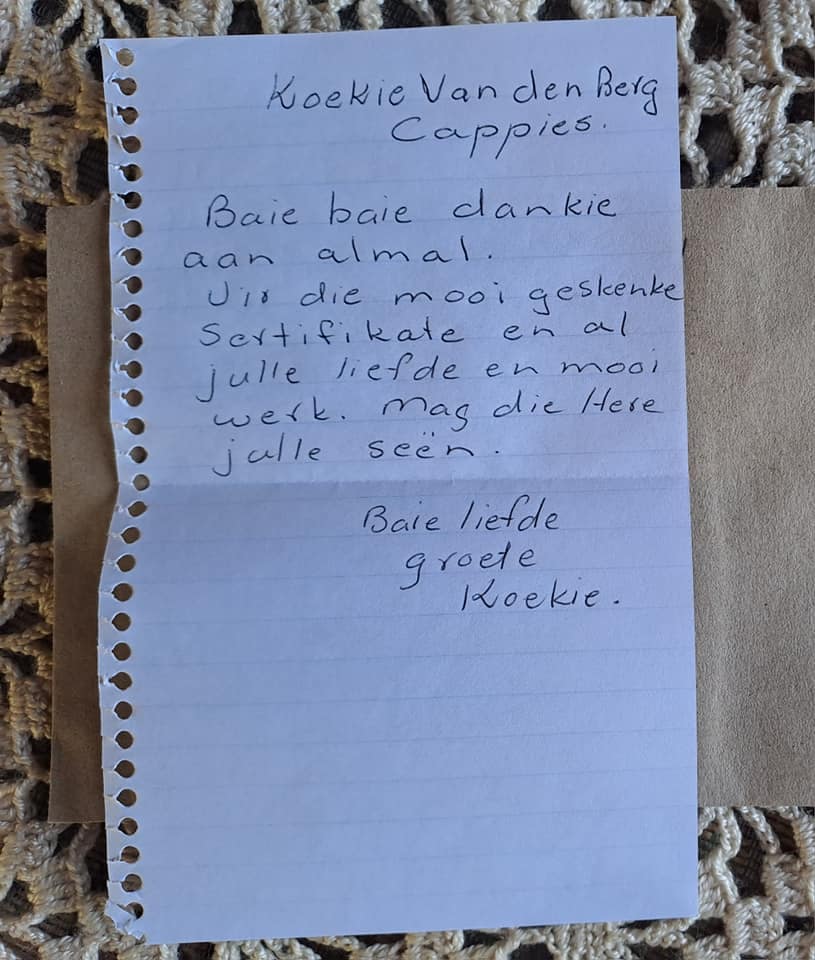 Koekie Van den Berg
Cappies.
Baie baie dankie
aan almal.
Vir die mooi geskenke
Sertifikate en al
julle liefde en mooi
werk. Mag die Here
julle seën.
Baie liefde
groete
Koekie.